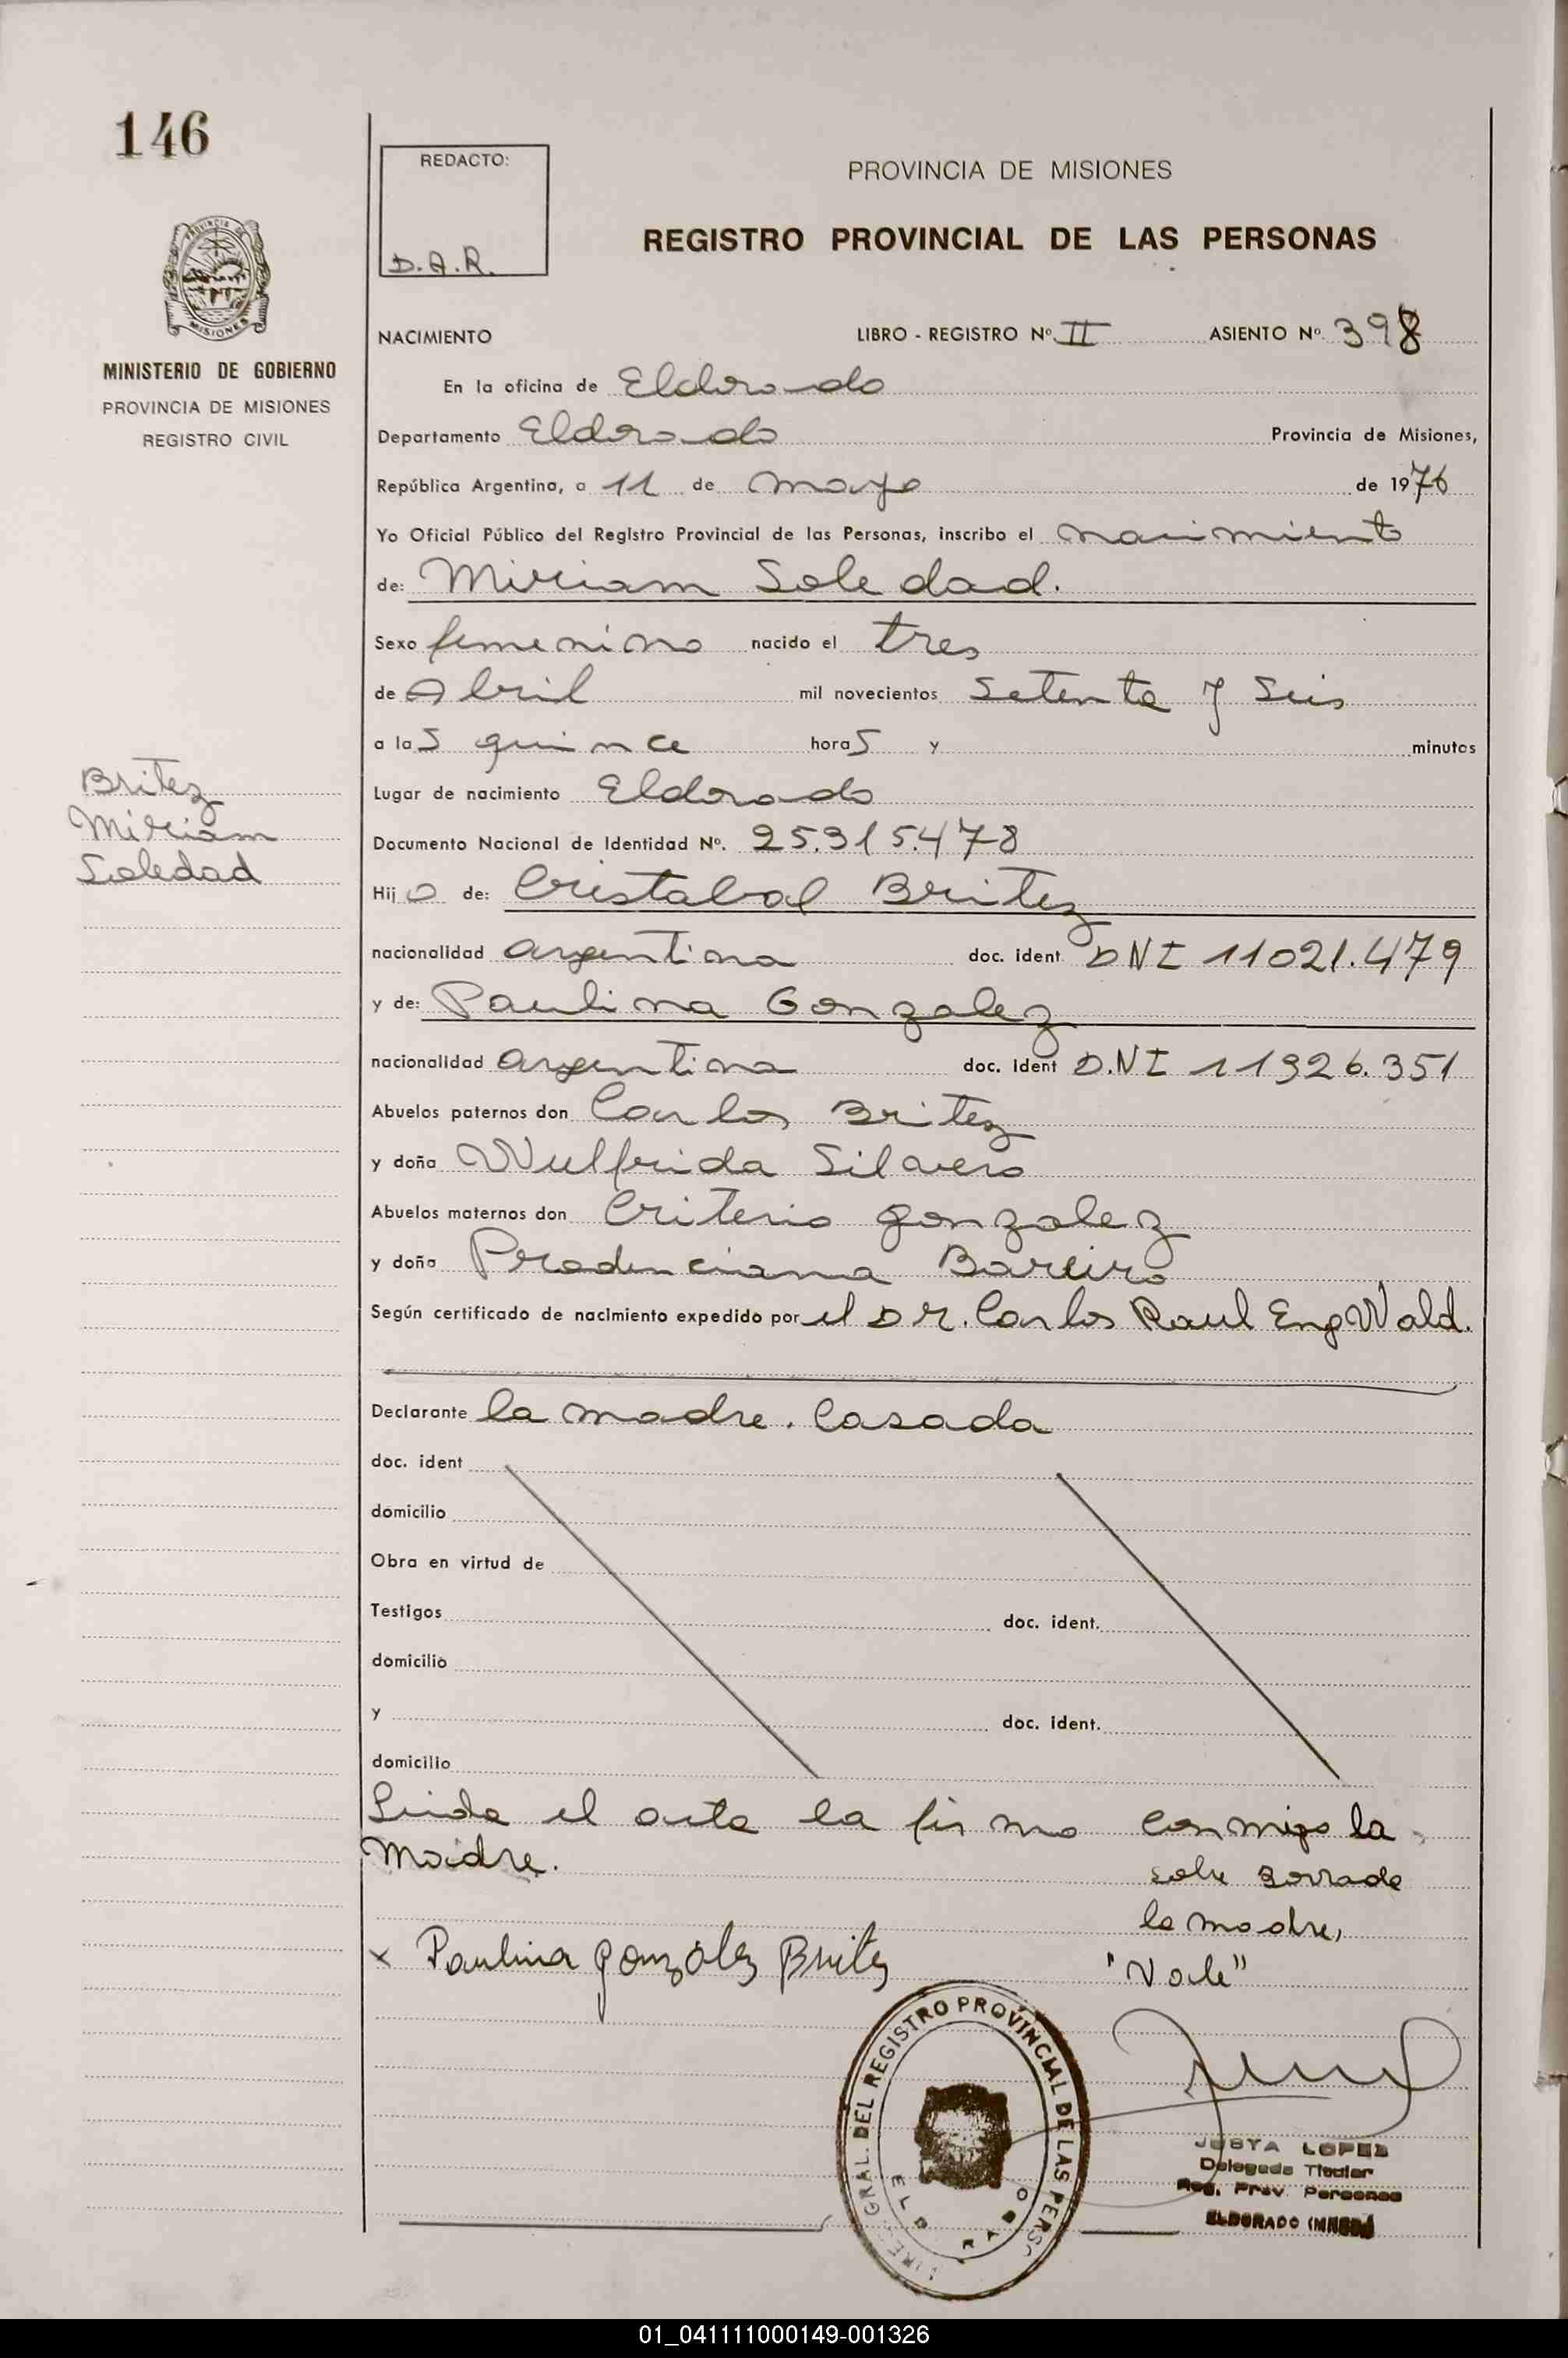 146
REDACTO:
D.A.R.
PROVINCIA DE MISIONES
REGISTRO PROVINCIAL DE LAS PERSONAS
PROVINCIA DE
MISIONES
MINISTERIO DE GOBIERNO
PROVINCIA DE MISIONES
REGISTRO CIVIL
NACIMIENTO LIBRO - REGISTRO Nº II ASIENTO Nº 398
En la oficina de Eldorado
Departamento Eldorado Provincia de Misiones,
República Argentina, a 11 de mayo de 1976
Yo Oficial Público del Registro Provincial de las Personas, inscribo el nacimiento
de: Miriam Soledad.
Sexo femenino nacido el tres
de Abril mil novecientos Setenta y Seis
a las quince horas y minutos
Britez
Miriam
Soledad
Lugar de nacimiento Eldorado
Documento Nacional de Identidad Nº. 25.315.478
Hijo de: Cristabal Britez
nacionalidad argentina doc. ident DNI 11021.479
y de: Paulina Gonzalez
nacionalidad argentina doc. ident D.NI 11926.351
Abuelos paternos don Carlos Britez
y doña Wulfrida Silvero
Abuelos maternos don Criterio gonzalez
y doña Prodenciana Bareiro
Según certificado de nacimiento expedido por el DR. Carlos Raul EngWald.
Declarante la madre. Casada
doc. ident
domicilio
Obra en virtud de
Testigos doc. ident.
domicilio
y doc. ident.
domicilio
Leida el acta la firma conmigo la
Madre.
sobre Borrado
la madre,
"Vale"
x Paulina gonzález Britez
GRAL. DEL REGISTRO PROVINCIAL DE LAS PERS
ELDORADO
JUSTA LOPEZ
Delegada Titular
Reg. Prov. Personas
ELDORADO
01_041111000149-001326